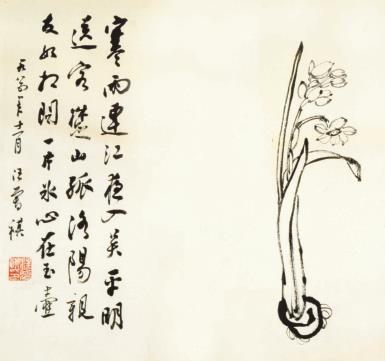 寒雨連江夜入吴平明
送客楚山孤洛陽親
友如相問一片冰心在玉壺
年十一月 汪曾祺